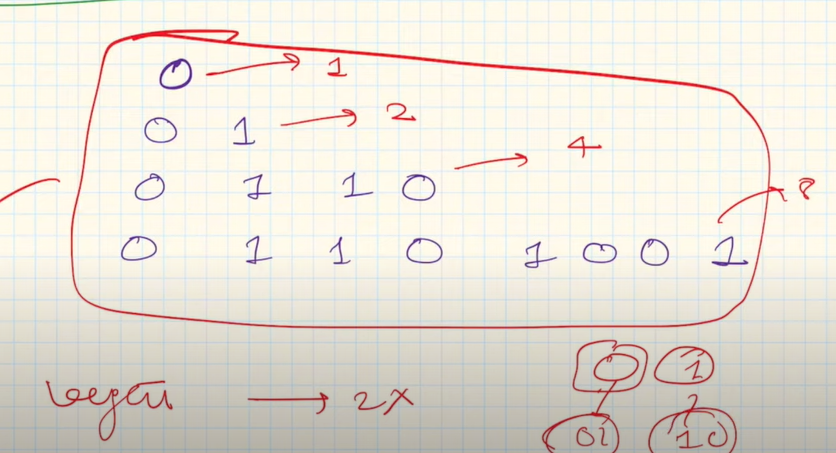 0 → 1
0 1 → 2
0 1 1 0 → 4
0 1 1 0 1 0 0 1 → 8
→ 2x
0 1
01 10